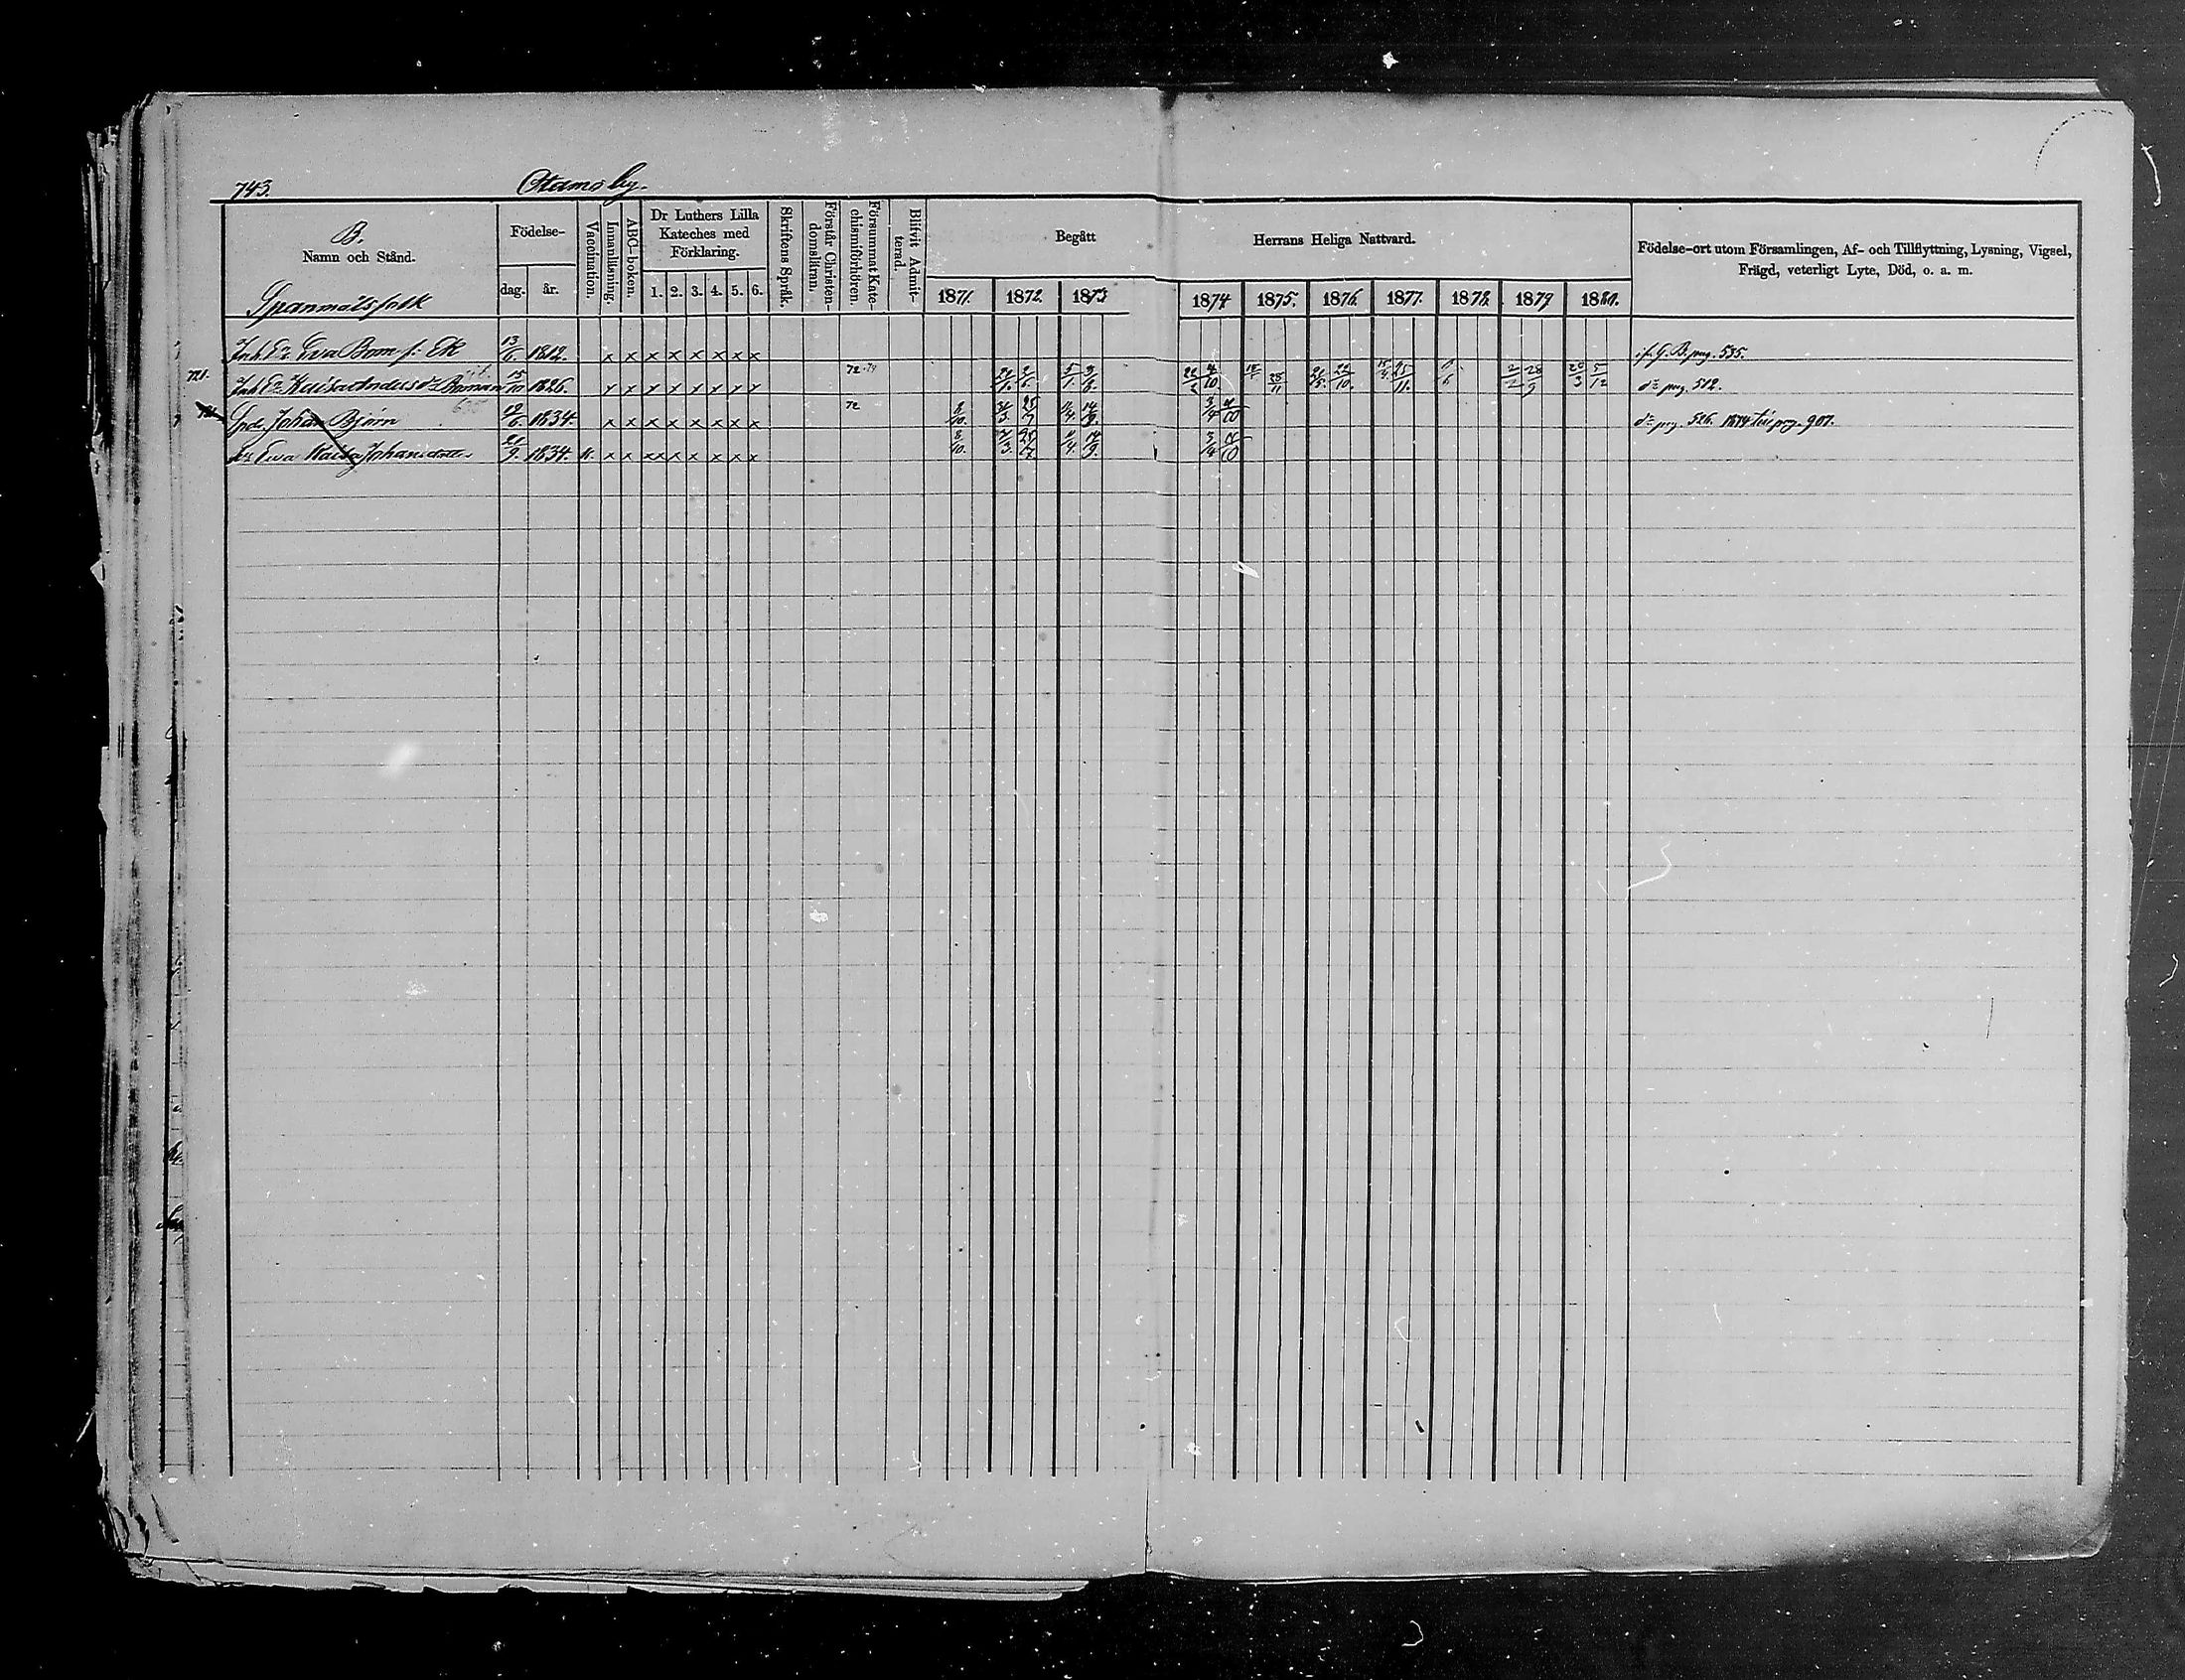 743. Otamo by.
B.
Namn och Stånd.
Spanmålsfolk
Födelse-
dag. år.
Vaccination.
Innanläsning.
ABC-boken.
Dr Luthers Lilla Kateches med Förklaring.
1. 2. 3. 4. 5. 6.
Skriftens Språk.
Förstår Christen-domsläran.
Försummat Kate-chismiförhören.
Blifvit Admit-terad.
Begått Herrans Heliga Nattvard.
1871. 1872. 1873 1874 1875. 1876. 1877. 1878. 1879 1880.
Födelse-ort utom Församlingen, Af- och Tillflyttning, Lysning, Vigsel,
Frägd, veterligt Lyte, Död, o. a. m.
Eva Boom f: Ek 13/6 1812. x x x x x x x x if. G. B. pag. 535.
721. Kaisa Andersd:r Boman 15/10 1826. x x x x x x x x 72 74 2/2 28/9 20/3 5/12 d:o pag. 512.
Johan Björn 22/6. 1834. x x x x x x x x 72 8/10. 3/4 d:o pag. 526. 1874 till pag. 907.
Eva Maija Johansdotter 21/9. 1834. v. x x x x x x x x 8/10. 3/4